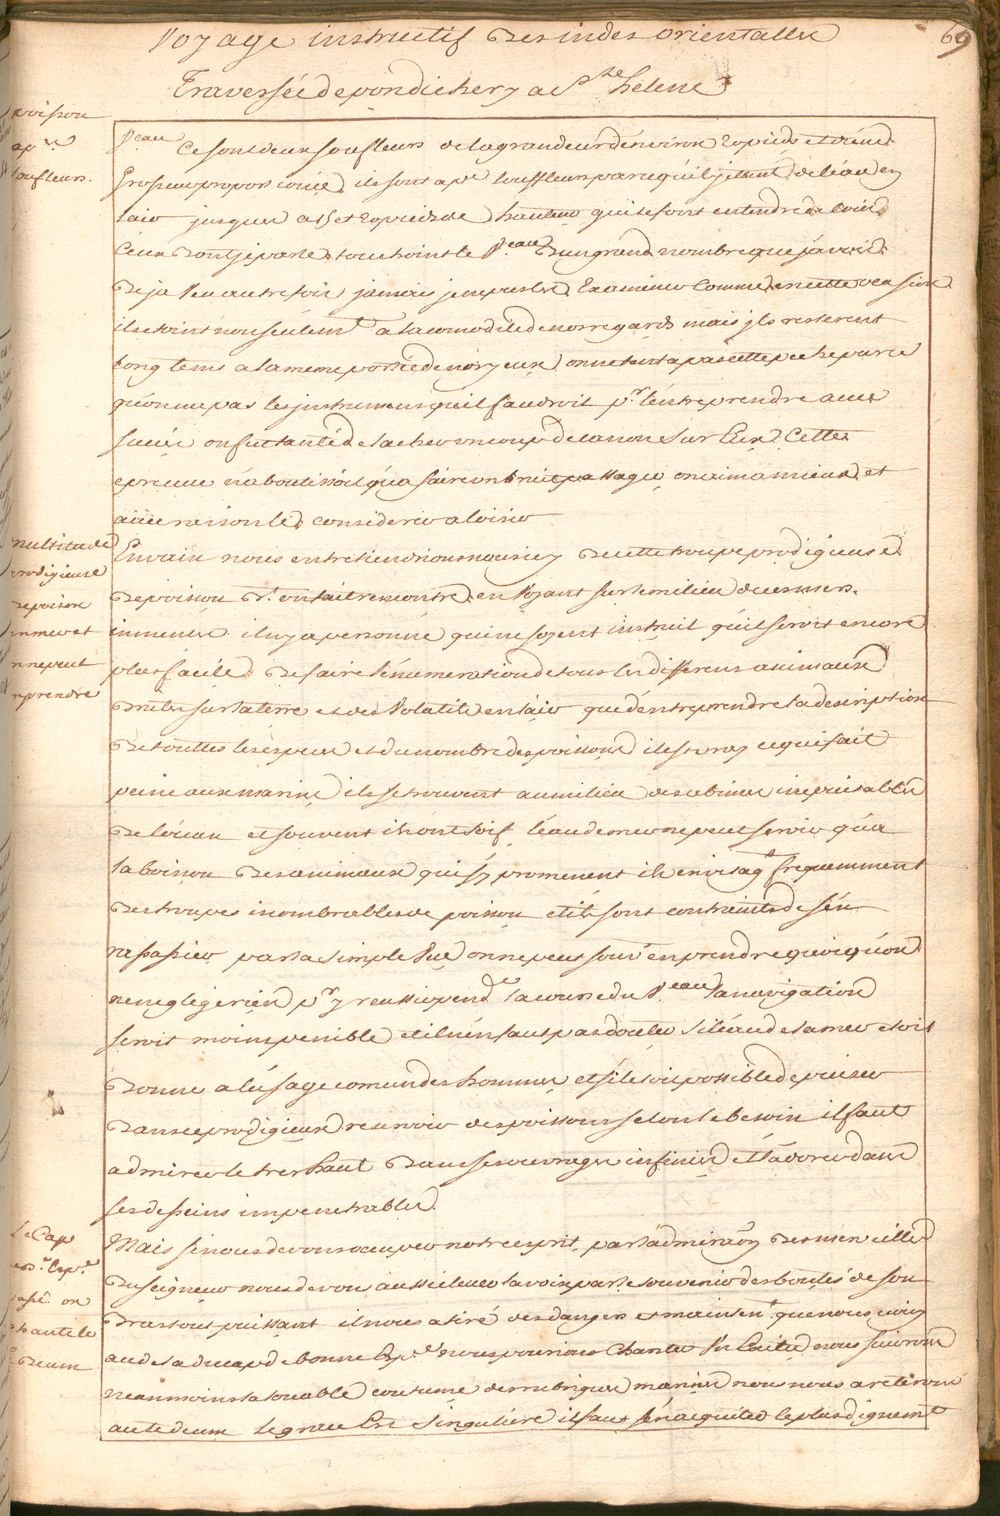 Voyage instructif des indes orientalles
69
Traversée de pondichery a Ste helene
poisson
apllé
soufleurs.
Veau Ce sont deux soufleurs de la grandeur d'environ 20 pieds et d'une
Grosseur proportionée, ils sont aplé souffleurs parce qu'il jettent de l'eau en
lair jusques a 15 et 20 pieds de hauteur qui se font entendre de loin
Ceux dont je parle toucherent le Veau d'un grand nombre que j'avois
Deja veu autrefois jamais je ne pus les Examiner comme en cette ocasion
ils setoint non seulemt a la comodité de nos regards mais jls resterent
long tems a la meme portée de nos yeux on ne tenta pas cette peche parce
qu'on ne pas les jnstrumens qu'il faudroit pr l'entreprendre avec
succés on fut tanté de lacher un coup de canon sur Eux, Cette
epreuve n'aboutissoit qu'a faire un bruit passager on aima mieux et
avec raison les considerer a loisir
multitude
prodigieuse
de poison
en mer et
on ne peut
en prendre
Envain nous entretiendrions nous icy de cette troupe prodigieuse
De poison dt on fait rencontre en voyant sur le milieu de ces mers
immenses il ny a personne qui ne soyent instruit qu'il seroit encore
plus facile de faire l'enumeration de tous les differens animaux
Terre et des Volatile en lair que d'entreprendre la description
De touttes les especes et du nombre des poissons il est vray ce qui fait
peine aux marins ils se trouvent au milieu des abimes inepuisables
De l'ocean et souvent ils ont soif l'eau de mer ne peut servir qu'a
la boisson des animaux qui s'y promenent ils envisagt frequemment
Des troupes inombrables de poisson et ils sont contraints de s'en
rassasier par la simple Vue on ne peut souvt en prendre quoiqu'on
ne neglige rien pr y reussir pendt la course du Veau la navigation
seroit moins penible et il n'en faut pas douter si l'eau de la mer etoit
Donne a l'usage comun des hommes et s'il etoit possible de puiser
Dans ce prodigieux reservoir des poissons selon le besoin il faut
admirer le tres haut Dans ses ouvrages infinies et l'adorer dans
ses desseins impenetrables.
Le Cap
de Be Espce
passé on
chante le
te Deum
Mais si nous devons ocuper notre esprit par l'admiraon des merveilles
Du seigneur nous devons aussi elever la voix par le souvenir des bontés de son
Bras tout puissant il nous a tiré des dangers et maintent que nous voicy
audela du cap de bonne Espce nous pouvions chanter sa gloire nous suivrons
neanmoins la louable coutume des rubriques marines nous nous areterons
au te deum la grace Est singuliere il faut s'en acquiter le plus dignemt